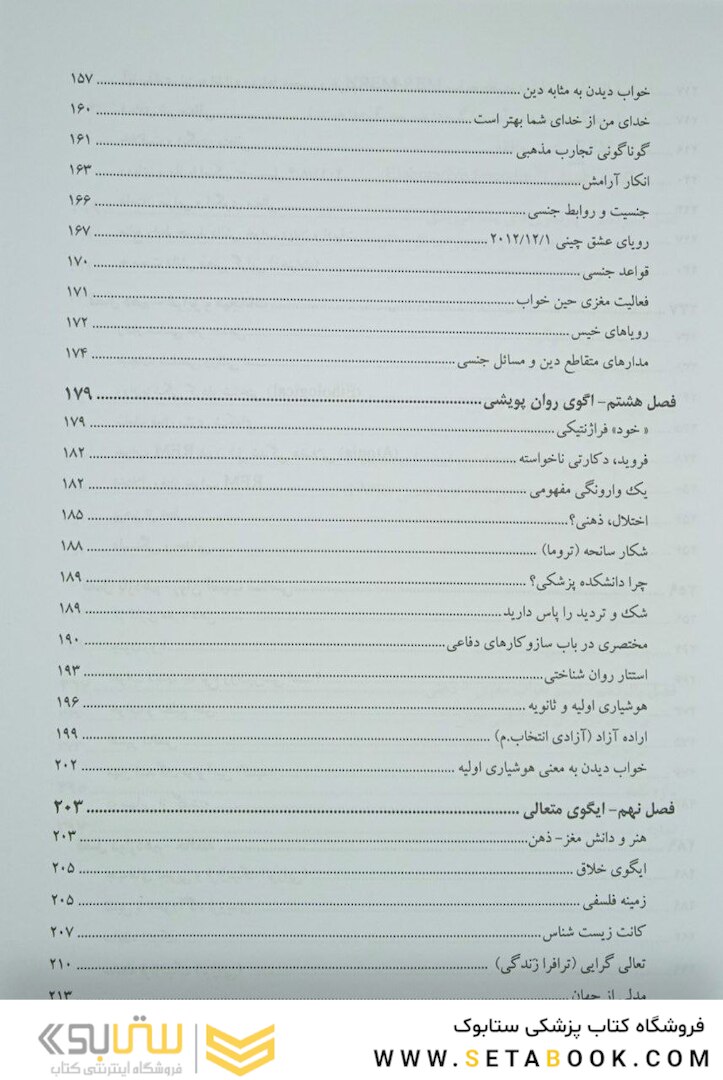 خواب دیدن به مثابه دین ........ ۱۵۷
خدای من از خدای شما بهتر است ........ ۱۶۰
گوناگونی تجارب مذهبی ........ ۱۶۱
انکار آرامش ........ ۱۶۳
جنسیت و روابط جنسی ........ ۱۶۶
رویای عشق چینی ۲۰۱۲/۱۲/۱ ........ ۱۶۷
قواعد جنسی ........ ۱۷۰
فعالیت مغزی حین خواب ........ ۱۷۱
رویاهای خیس ........ ۱۷۲
مدارهای متقاطع دین و مسائل جنسی ........ ۱۷۴
فصل هشتم- اگوی روان پویشی ........ ۱۷۹
« خود» فراژنتیکی ........ ۱۷۹
فروید، دکارتی ناخواسته ........ ۱۸۲
یک وارونگی مفهومی ........ ۱۸۲
اختلال، ذهنی؟ ........ ۱۸۵
شکار سانحه (تروما) ........ ۱۸۸
چرا دانشکده پزشکی؟ ........ ۱۸۹
شک و تردید را پاس دارید ........ ۱۸۹
مختصری در باب سازوکارهای دفاعی ........ ۱۹۰
استتار روان شناختی ........ ۱۹۳
هوشیاری اولیه و ثانویه ........ ۱۹۶
اراده آزاد (آزادی انتخاب.م) ........ ۱۹۹
خواب دیدن به معنی هوشیاری اولیه ........ ۲۰۲
فصل نهم- ایگوی متعالی ........ ۲۰۳
هنر و دانش مغز- ذهن ........ ۲۰۳
ایگوی خلاق ........ ۲۰۵
زمینه فلسفی ........ ۲۰۵
کانت زیست شناس ........ ۲۰۷
تعالی گرایی (ترافرا زندگی) ........ ۲۱۰
مدلی از جهان ........ ۲۱۳
فروشگاه کتاب پزشکی ستابوک
WWW.SETABOOK.COM
ستابوک
فروشگاه اینترنتی کتاب